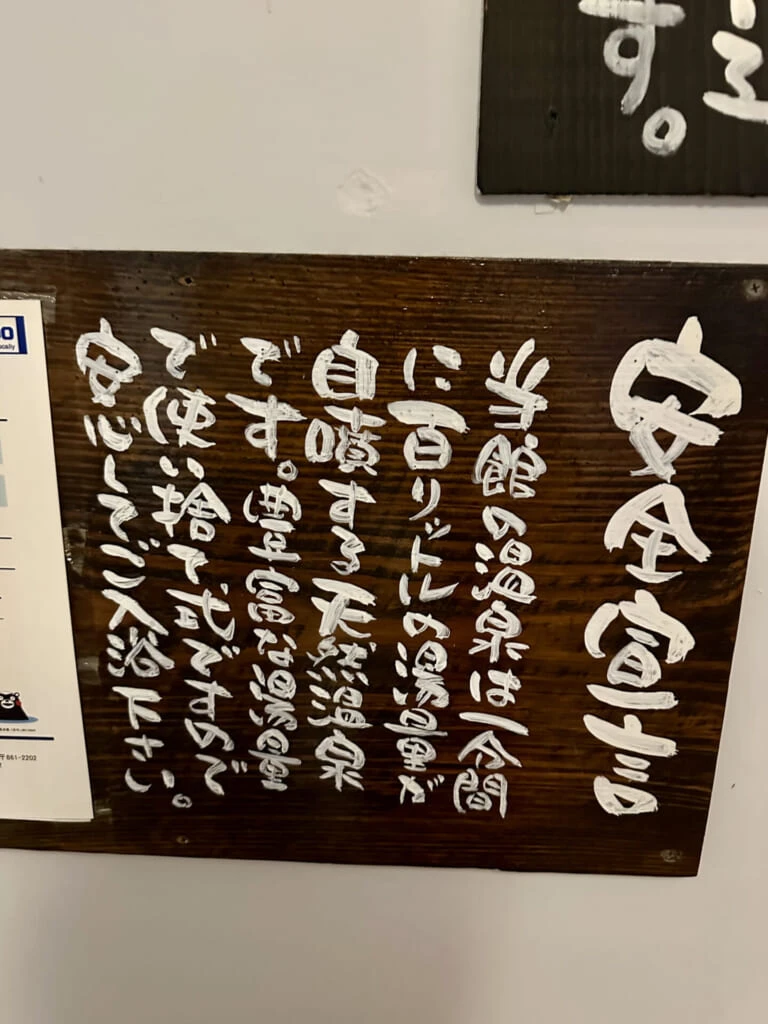 す。
安全宣言
当館の温泉は一分間
に百リットルの湯量が
自噴する天然温泉
です。豊富な湯量
で使い捨て式ですので
安心してご入浴下さい。
661-2202